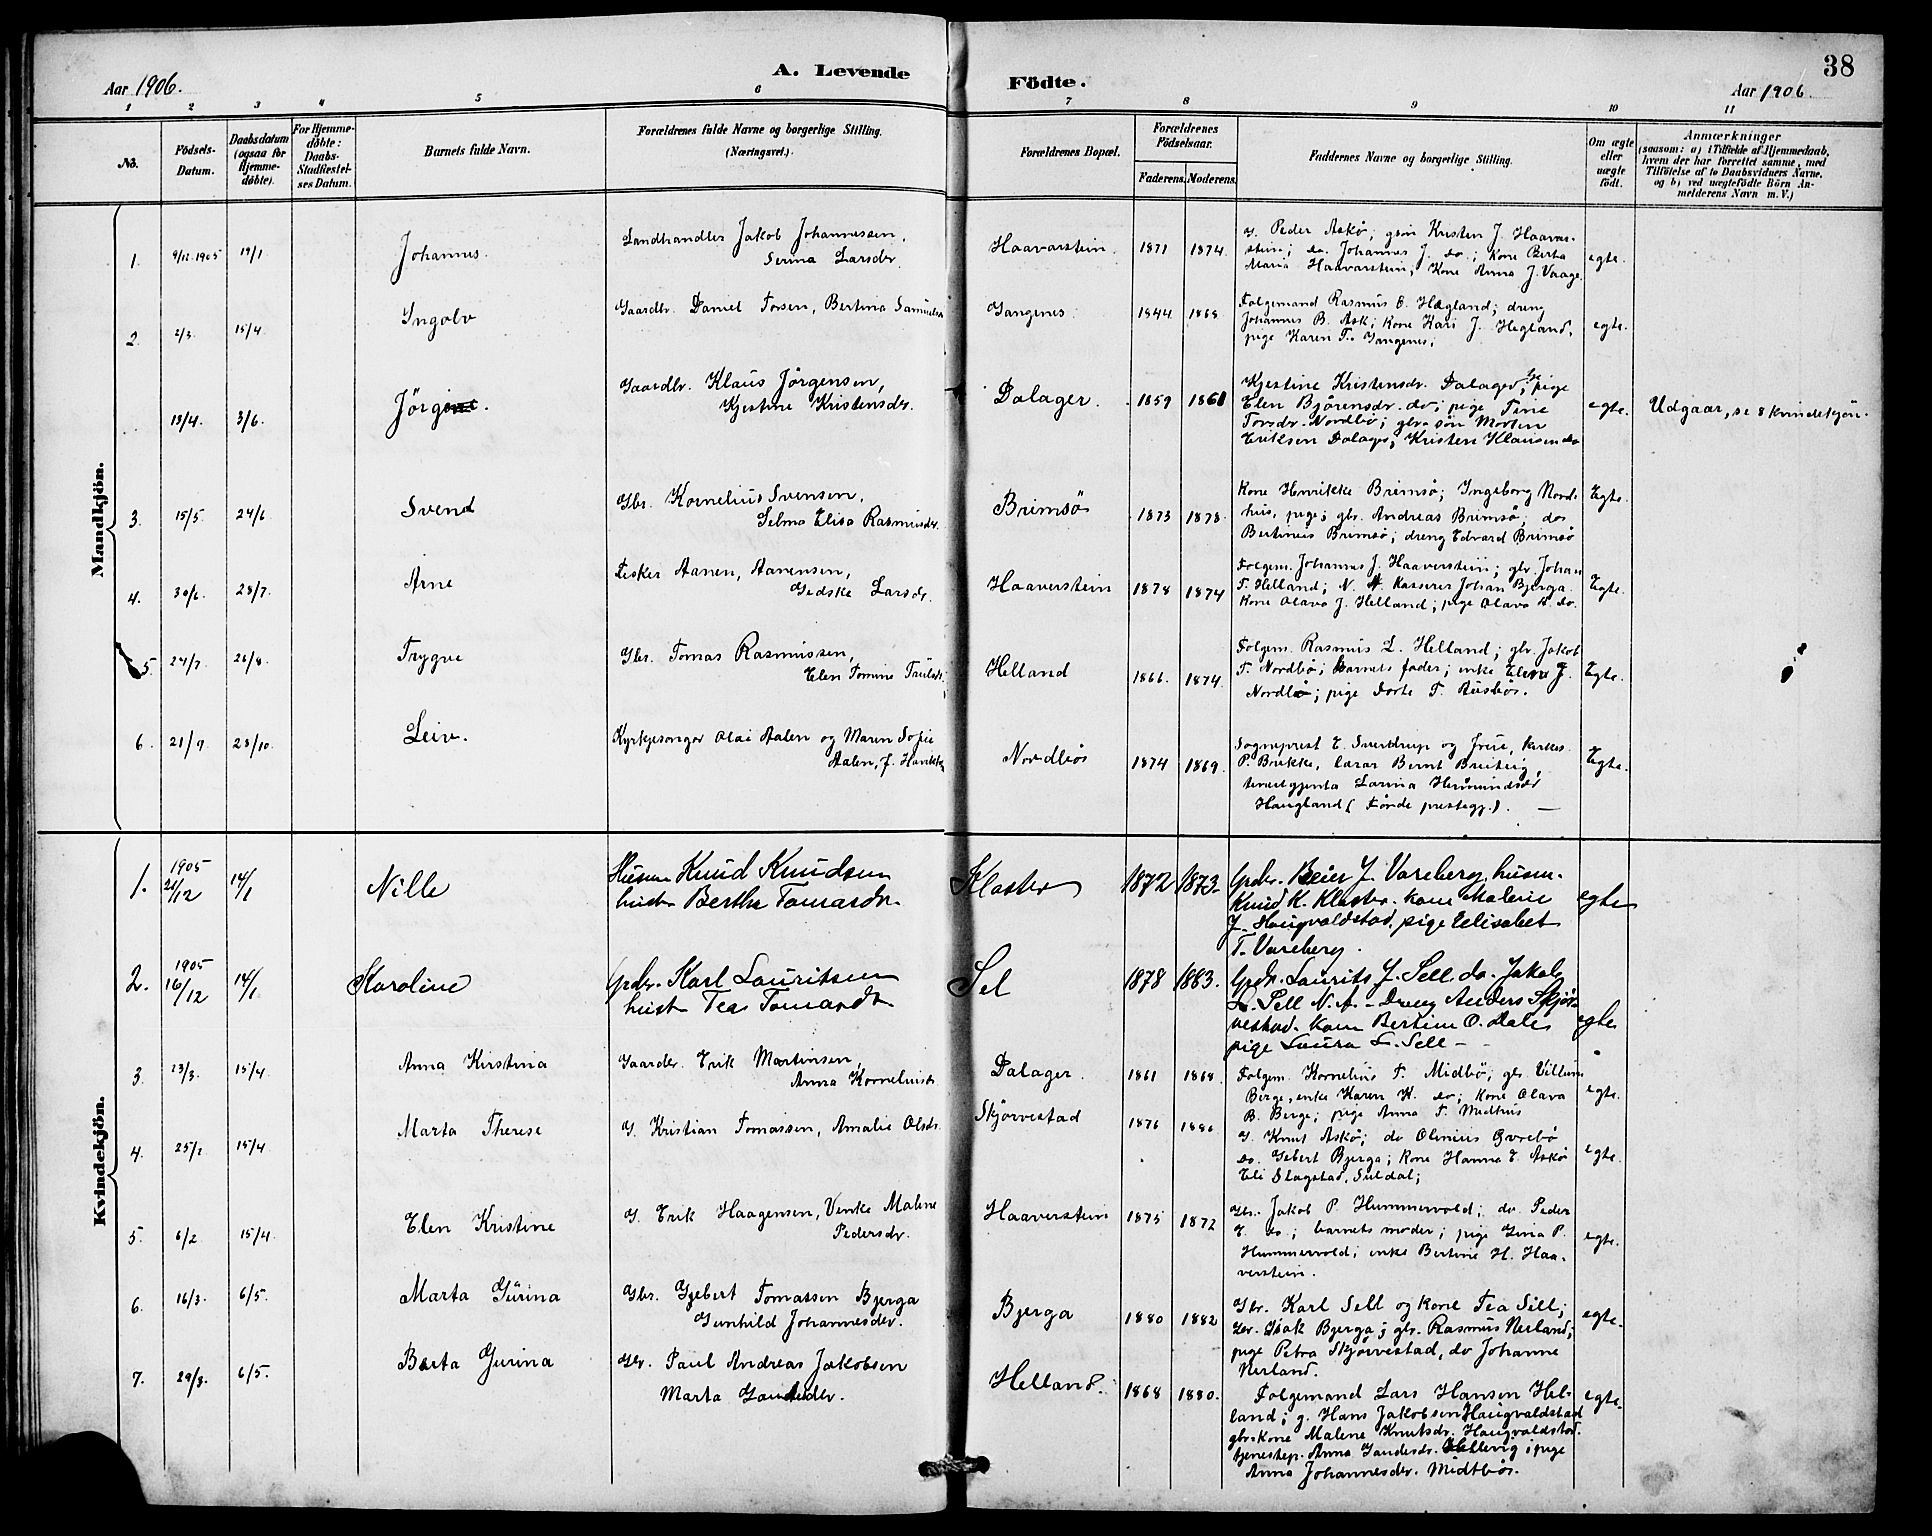 38
A. Levende Födte.
Aar 1906.
Aar 1906
1 2 3 4 5 6 7 8 9 10 11
No.
Födsels-Datum.
Daabsdatum (ogsaa for Hjemme-døbte).
For Hjemme-døbte: Daabs-Stadfæstelses Datum.
Barnets fulde Navn.
Forældrenes fulde Navne og borgerlige Stilling. (Næringsvei.)
Forældrenes Bopæl.
Forældrenes Födselsaar.
Faderens. Moderens.
Faddernes Navne og borgerlige Stilling.
Om ægte eller uægte født.
Anmærkninger
(saasom: a) i Tilfælde af Hjemmedaab, hvem der har forrettet samme, med Tilföielse af to Daabsvidners Navne, og b) ved uægtefödte Börn Anmelderens Navn m. V.)
Mandkjön.
1. 9/12 1905 14/1 Johannes. Landhandler Jakob Johannessen, Serina Larsdr. Haavarstein. 1871 1874. G. Peder Askø; gsøn Kristen J. Haavarstein; do. Johannes J. do.; kone Berta Maria Haavarstein; kone Anna J. Vaage. egte.
2. 2/3. 15/4. Ingolv Gaardbr. Daniel Torsen, Bertina Samuelsdr Gangenes 1844 1868. Folgemand Rasmus E. Hægland; dreng Johannes B. Ask; kone Kari J. Hegland, pige Karen T. Gangenes; egte.
13/4. 3/6. Jörgine. Gaardbr. Klaus Jörgensen, Kjestine Kristensdr. Dalager. 1859 1861 Kjestine Kristensdr. Dalager, pige Elen Bjørensdr. do; pige Tine Torsdr. Nordbö; gbr. søn Morten Eriksen Dalager, Kristen Klausen do egte. Udgaar, se 8 kvindekjön.
3. 15/5. 24/6 Svend Gbr. Kornelius Svensen, Selma Elisa Rasmusdr. Brimsø 1873 1878. Kone Henrikke Brimsø; Ingeborg Nordhus, pige; gbr. Andreas Brimsø; do Bertinius Brimsø; dreng Edvard Brimsø Egte.
4. 30/6. 28/7. Arne Fisker Aanen Aanensen, Gudske Larsdr. Haaverstein 1878 1874 Folgem. Johannes J. Haaverstein; gbr. Johan T. Helland; N. A. Kasserer Johan Bjerga. Kone Olava J. Helland; pige Olava K. do. Egte.
5 24/7. 26/8. Trygve Gbr. Tomas Rasmussen, Elen Tomine Truls Helland 1866. 1874. Folgem. Rasmus L. Helland; gbr. Jakob T. Nordbø; barnets fader; enke Eline J. Nordbø; pige Dorte T. Øusbø. Egte.
6. 21/9. 28/10. Leiv. Kyrkjesongar Olai Aalen og Maren Sofie Aalen, f. Nordbø 1874 1869. Sogneprest E. Sverdrup og frue, P. Brekke, lærar Bernt Breiteig, tenestgjenta Larina Hermundsdr Haugland (Förde prestegj.). Egte.
Kvindekjön.
1. 1905 21/12 14/1 Nille Husm Knud Knudsen hustr Berthe Tomasdr. Kloster 1872 1873. Gpdr. Peier J. Vareberg, husm. Knud K. Kloster. kone Malene J. Haugvaldstad, pige Elisabet T. Vareberg. egte
2. 1905 16/12 14/1 Karoline Gpdr. Karl Lauritsen hustr Tea Tomasdr Sel 1878 1883. Gpdr. Laurits J. Sell do. Jakob L. Sell N. A. - Dreng Anders Skjörvestad. Kone Bertine O. Dale, pige Laura L. Sell - egte
3. 23/3. 15/4. Anna Kirstina Gaardbr. Erik Martinsen, Anna Korneliusdr. Dalager. 1861 1868. Folgem. Kornelius T. Midbö; gbr. Villum Berge, enke Karen K. do; kone Olava B. Berge; pige Anna T. Midthus egte.
4. 25/2 15/4. Marta Therese G. Kristian Tomassen, Amalie Olsdr. Skjorvestad 1876 1886 G. Knut Askø; do Olenius Øvrebö do. Gebert Bjerga; kone Hanna E. Askø Eli Slagstad, Suldal; egte.
5. 6/2 15/4. Elen Kristine G. Erik Haagensen, Venke Malene Pedersdr. Haaverstein 1875 1872 Gbr. Jakob P. Hummervold; do Peder E. do; barnets moder; pige Gina P. Hummervold; enke Bertine H. Haaverstein. egte.
6. 16/3. 6/5. Marta Gurina Gbr. Gjebert Tomassen Bjerga Gunhild Johannesdr. Bjerga 1880 1882 Gbr. Karl Sell og kone Tea Sell; gbr. Isak Bjerga; gbr. Rasmus Nerland; pige Petra Skjørvestad, do Johanne Nerland. egte.
7. 29/3. 6/5. Berta Gurina Gbr. Paul Andreas Jakobsen Marta Gaudesdr. Helland. 1868 1880. Folgemand Lars Hansen Helland; g. Hans Jakobsen Haugvaldstad gbr.kone Malene Knutsdr. Haugvaldstad. tjenestep. Anna Gaudesdr. Hellevig; pige Anna Johannesdr. Midtbös. egte.